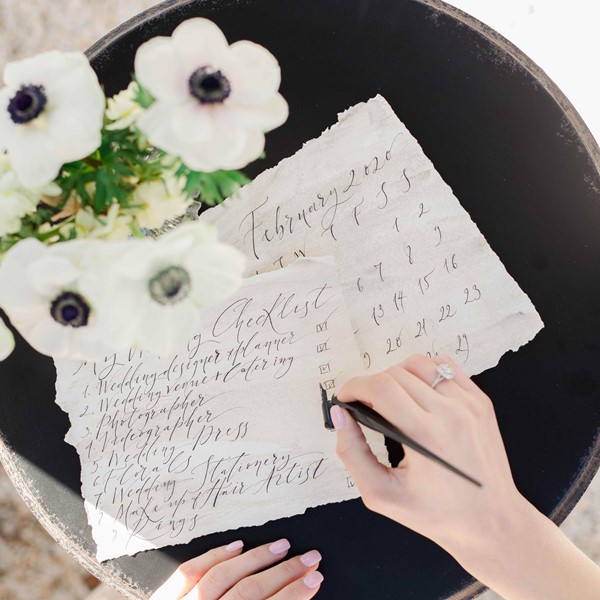 February 2020
T W T F S S
1 2
6 7 8 9
13 14 15 16
20 21 22 23
29
My Checklist
1. Wedding designer + planner
2. Wedding venue + Catering
3. Photographer
4. Videographer
5. Wedding Dress
6. Florals
7. Wedding Stationery
8. Make up + Hair Artist
9. Rings